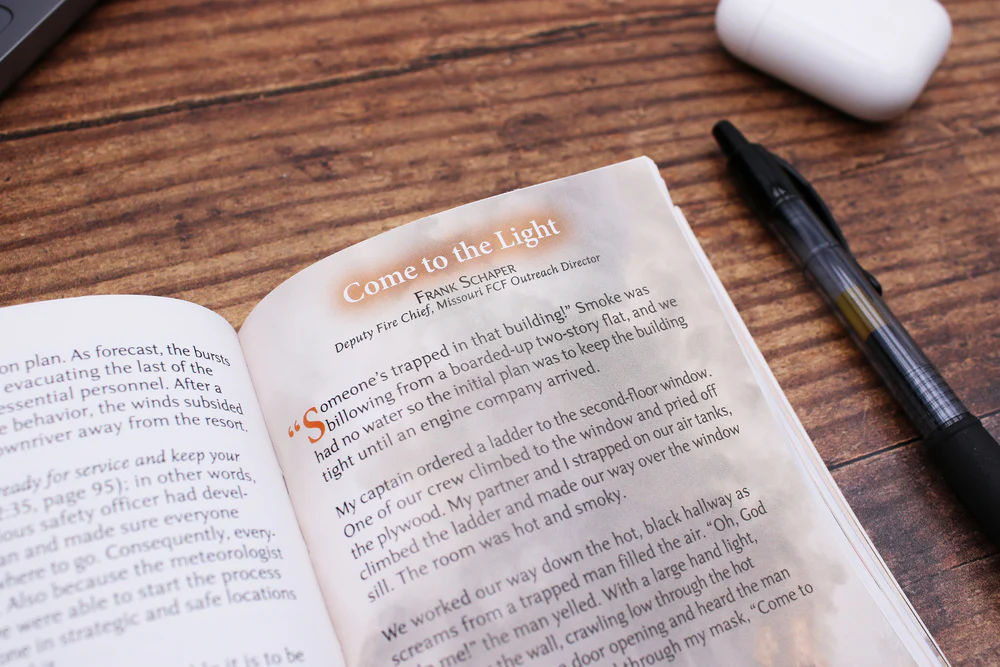 on plan. As forecast, the bursts
evacuating the last of the
essential personnel. After a
e behavior, the winds subsided
ownriver away from the resort.
ready for service and keep your
:35, page 95); in other words,
ious safety officer had devel-
an and made sure everyone
where to go. Consequently, every-
. Also because the meteorologist
e were able to start the process
ne in strategic and safe locations
it is to be
Come to the Light
Frank Schaper
Deputy Fire Chief, Missouri FCF Outreach Director
“Someone’s trapped in that building!” Smoke was
billowing from a boarded-up two-story flat, and we
had no water so the initial plan was to keep the building
tight until an engine company arrived.
My captain ordered a ladder to the second-floor window.
One of our crew climbed to the window and pried off
the plywood. My partner and I strapped on our air tanks,
climbed the ladder and made our way over the window
sill. The room was hot and smoky.
We worked our way down the hot, black hallway as
screams from a trapped man filled the air. “Oh, God
me!” the man yelled. With a large hand light,
the wall, crawling low through the hot
a door opening and heard the man
through my mask, “Come to